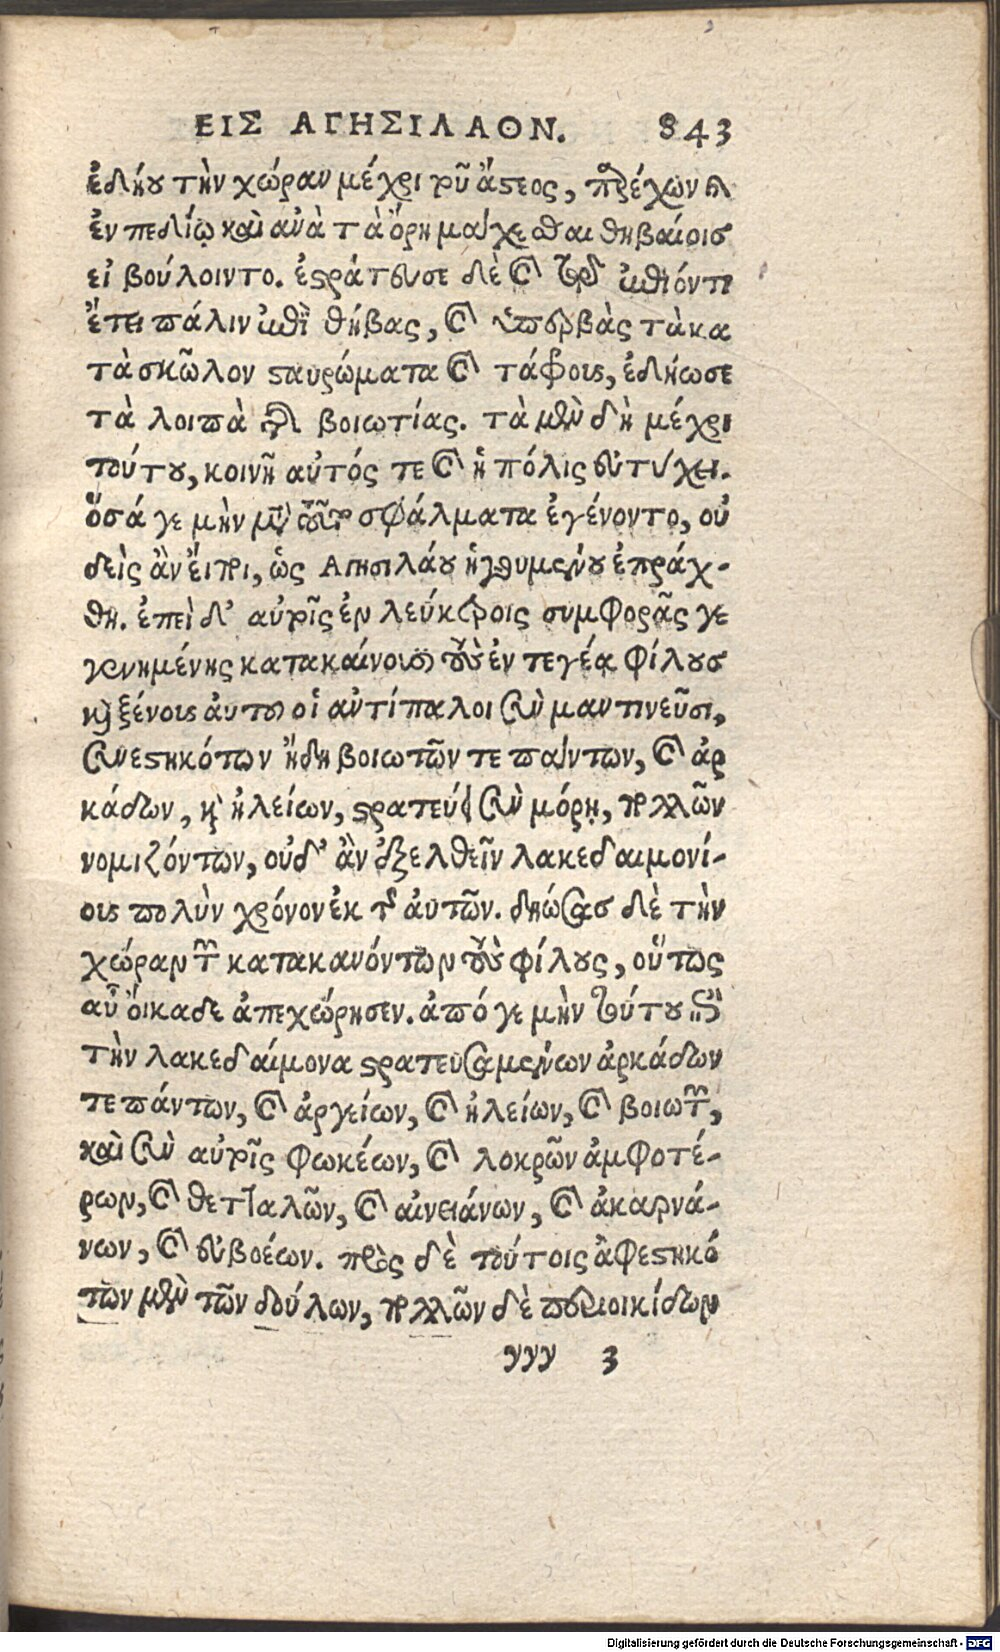 ΕΙΣ ΑΓΗΣΙΛΑΟΝ. 843
ἐδῄου τὴν χώραν μέχρι τοῦ ἄστεος, παρέχων καὶ
ἐν πεδίῳ καὶ ἀνὰ τὰ ὄρη μάχεσθαι θηβαίοισ
εἰ βούλοιντο. ἐστράτευσε δὲ καὶ τῷ ἐπιόντι
ἔτει πάλιν ἐπὶ θήβας, καὶ ὑπερβὰς τὰ κα
τὰ σκῶλον σταυρώματα καὶ τάφρους, ἐδῄωσε
τὰ λοιπὰ τῆς βοιωτίας. τὰ μὲν δὴ μέχρι
τούτου, κοινῇ αὐτός τε καὶ ἡ πόλις εὐτύχει.
ὅσά γε μὴν μετὰ τοῦτο σφάλματα ἐγένοντο, οὐ
δεὶς ἂν εἴποι, ὡς Αγησιλάου ἡγουμένου ἐπράχ-
θη. ἐπεὶ δ' αὐτοῖς ἐν λεύκτροις συμφορᾶς γε
γενημένης κατακαίνουσι τοὺς ἐν τεγέᾳ φίλουσ
καὶ ξένους αὐτοῦ οἱ ἀντίπαλοι σὺν μαντινεῦσι,
συνεστηκότων ἤδη βοιωτῶν τε πάντων, καὶ ἀρ
κάδων, καὶ ἠλείων, στρατεύει σὺν μόρῃ, πολλῶν
νομιζόντων, οὐδ' ἂν ἐξελθεῖν λακεδαιμονί-
ους πολὺν χρόνον ἐκ τῆς αὑτῶν. δῃώσας δὲ τὴν
χώραν τῶν κατακανόντων τοὺς φίλους, οὕτως
αὖ οἴκαδε ἀπεχώρησεν. ἀπό γε μὴν τούτου ἐπὶ
τὴν λακεδαίμονα στρατευσαμένων ἀρκάδων
τε πάντων, καὶ ἀργείων, καὶ ἠλείων, καὶ βοιωτῶν,
καὶ σὺν αὐτοῖς φωκέων, καὶ λοκρῶν ἀμφοτέ-
ρων, καὶ θετταλῶν, καὶ αἰνειάνων, καὶ ἀκαρνά-
νων, καὶ εὐβοέων. πρὸς δὲ τούτοις ἀφεστηκό
των μὲν τῶν δούλων, πολλῶν δὲ περιοικίδων
yyy 3
Digitalisierung gefördert durch die Deutsche Forschungsgemeinschaft - DFG